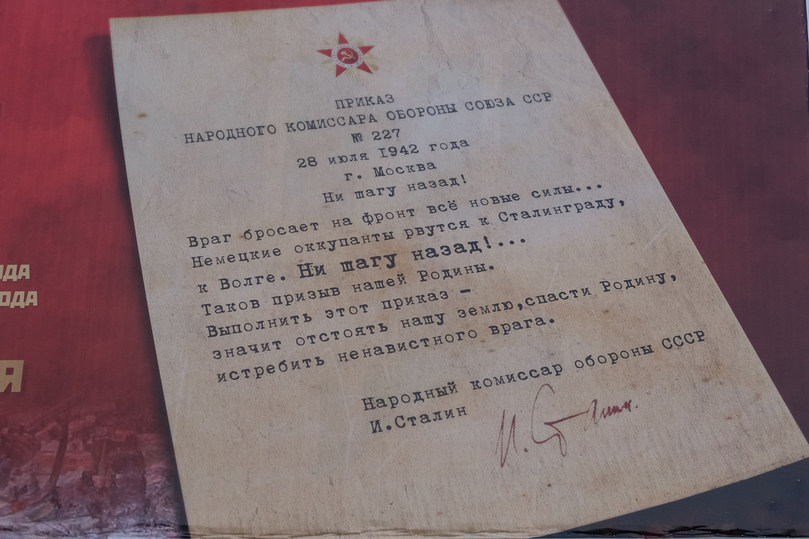 ПРИКАЗ
НАРОДНОГО КОМИССАРА ОБОРОНЫ СОЮЗА ССР
№ 227
28 июля 1942 года
г. Москва
Ни шагу назад!
Враг бросает на фронт всё новые силы...
Немецкие оккупанты рвутся к Сталинграду,
к Волге. Ни шагу назад!...
Таков призыв нашей Родины.
Выполнить этот приказ –
значит отстоять нашу землю,спасти Родину,
истребить ненавистного врага.
Народный комиссар обороны СССР
И.Сталин
И. Сталин.